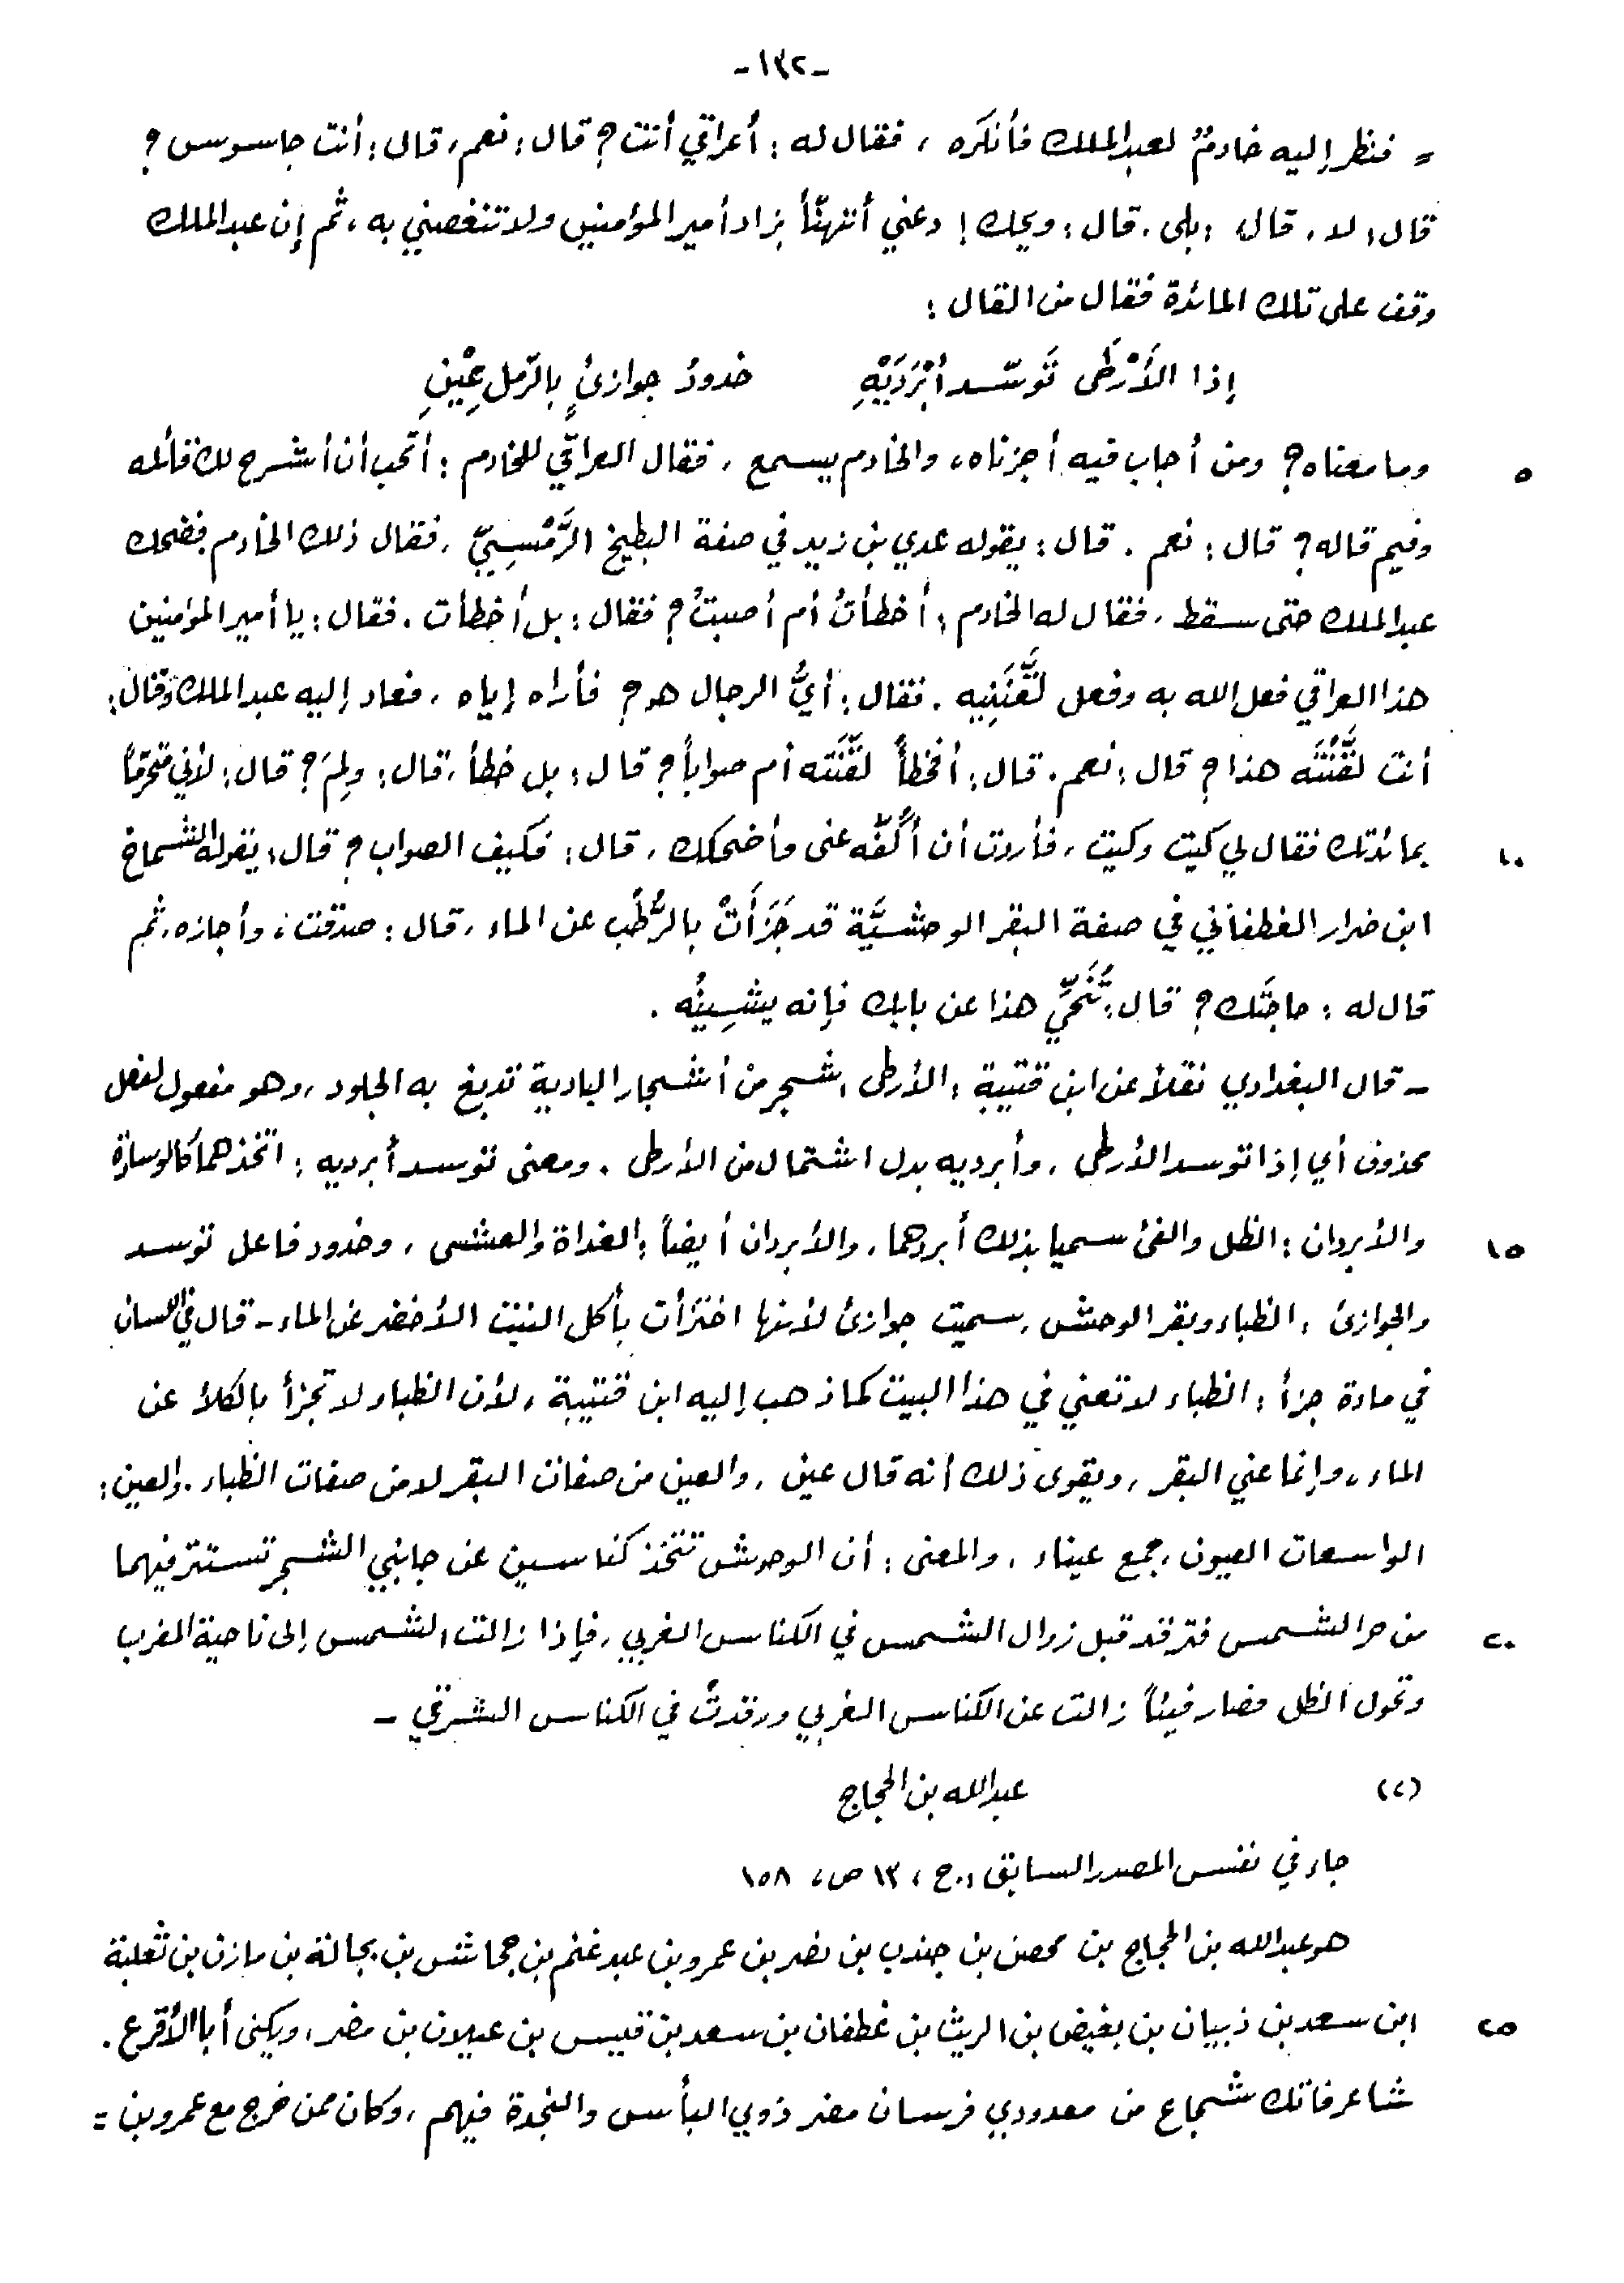 -١٣٢-
= فنظر إليه خادمٌ لعبد الملك فأنكره ، فقال له : أعراقي أنت ؟ قال : نعم ، قال : أنت جاسوس ؟
قال : لا ، قال : بلى ، قال : ويحك ! دعني أتهنّأ بزاد أمير المؤمنين ولا تنغصني به ، ثم إن عبد الملك
وقف على تلك المائدة فقال من القال :
إذا الأَرْطَى تَوسّد أَبْرَدَيْهِ خدودُ جوازئٍ بالرّمل عِيْنِ
٥ وما معناه ؟ ومن أجاب فيه أجزناه ، والخادم يسمع ، فقال العراقي للخادم : أتحب أن أشرح لك قائله
وفيم قاله ؟ قال : نعم . قال : يقوله عدي بن زيد في صفة البطيخ الرَّمْسِيّ ، فقال ذلك الخادم فضحك
عبد الملك حتى سقط ، فقال له الخادم : أخطأتُ أم أصبتُ ؟ فقال : بل أخطأت . فقال : يا أمير المؤمنين
هذا العراقي فعل الله به وفعل لقَّنَنِيه . فقال : أيُّ الرجال هو ؟ فأراه إياه ، فعاد إليه عبد الملك وقال :
أنت لقَّنْتَه هذا ؟ قال : نعم . قال : أفخطأً لقَّنْته أم صواباً ؟ قال : بل خطأ ، قال : ولِمَ ؟ قال : لأني متحرّماً
١٠ بمائدتك فقال لي كيت وكيت ، فأردت أن أكُفّه عني وأضحكك ، قال : فكيف الصواب ؟ قال : يقوله الشماخ
ابن ضرار الغطفاني في صفة البقر الوحشيَّة قد جَزَأَتْ بالرُّطْب عن الماء ، قال : صدقت ، وأجازه ، ثم
قال له : حاجتَك ؟ قال : تُنَحِّي هذا عن بابك فإنه يشِينُه .
- قال البغدادي نقلاً عن ابن قتيبة : الأرطى ، شجر من أشجار البادية تدبغ به الجلود ، وهو مفعول لفعل
محذوف أي إذا توسد الأرطى ، وأبرديه بدل اشتمال من الأرطى . ومعنى توسد أبرديه : اتخذهما كالوسادة
١٥ والأبردان : الظل والفئ سميا بذلك لبردهما ، والأبردان أيضاً : الغداة والعشي ، وخدود فاعل توسد
والجوازئ : الظباء وبقر الوحش ، سميت جوازئ لأنها اجتزأت بأكل النبت الأخضر عن الماء - قال في اللسان
في مادة جزأ : الظباء لا تعني في هذا البيت كما ذهب إليه ابن قتيبة ، لأن الظباء لا تجزأ بالكلأ عن
الماء ، وإنما عني البقر ، ويقوى ذلك أنه قال عين ، والعين من صفات البقر لا من صفات الظباء . والعين :
الواسعات العيون ، جمع عيناء ، والمعنى : أن الوحوش تتخذ كناسين عن جانبي الشجر تستتر فيهما
٢٠ من حر الشمس فترقد قبل زوال الشمس في الكناس الغربي ، فإذا زالت الشمس إلى ناحية المغرب
وتحول الظل فصار فيئاً زالت عن الكناس الغربي ورقدتْ في الكناس الشرقي -
(٢) عبد الله بن الحجاج
جاء في نفس المصدر السابق ، ج ، ١٣ ص ، ١٥٨
هو عبد الله بن الحجاج بن محصن بن جندب بن نصر بن عمرو بن عبد غنم بن جحاش بن بجالة بن مازن بن ثعلبة
٢٥ ابن سعد بن ذبيان بن بغيض بن الريث بن غطفان بن سعد بن قيس بن عيلان بن مضر ، ويكنى أبا الأقرع .
شاعر فاتك شجاع من معدودي فرسان مضر ذوي البأس والنجدة فيهم ، وكان ممن خرج مع عمرو بن =